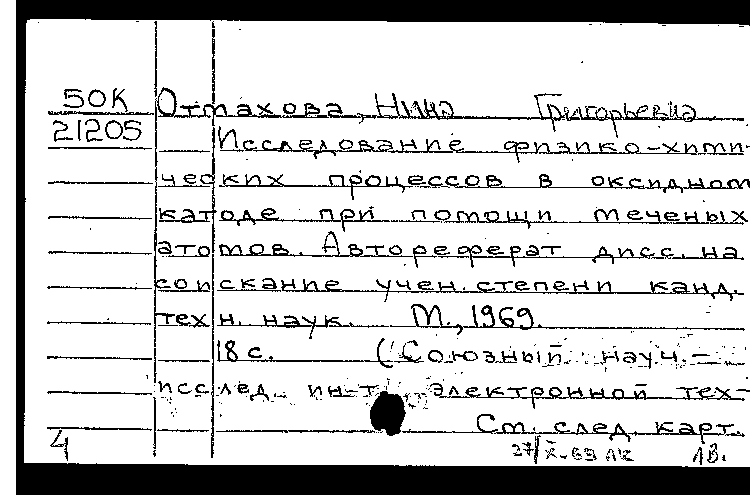 50К Отмахова, Нина Григорьевна
21205 Исследование физико-хими-
ческих процессов в оксидном
катоде при помощи меченых
атомов. Автореферат дисс. на
соискание учен. степени канд.
техн. наук. М., 1969.
18 с. (Союзный науч.-
исслед. ин-т электронной тех-
См. след. карт.
4 27/X-69 ЛВ.